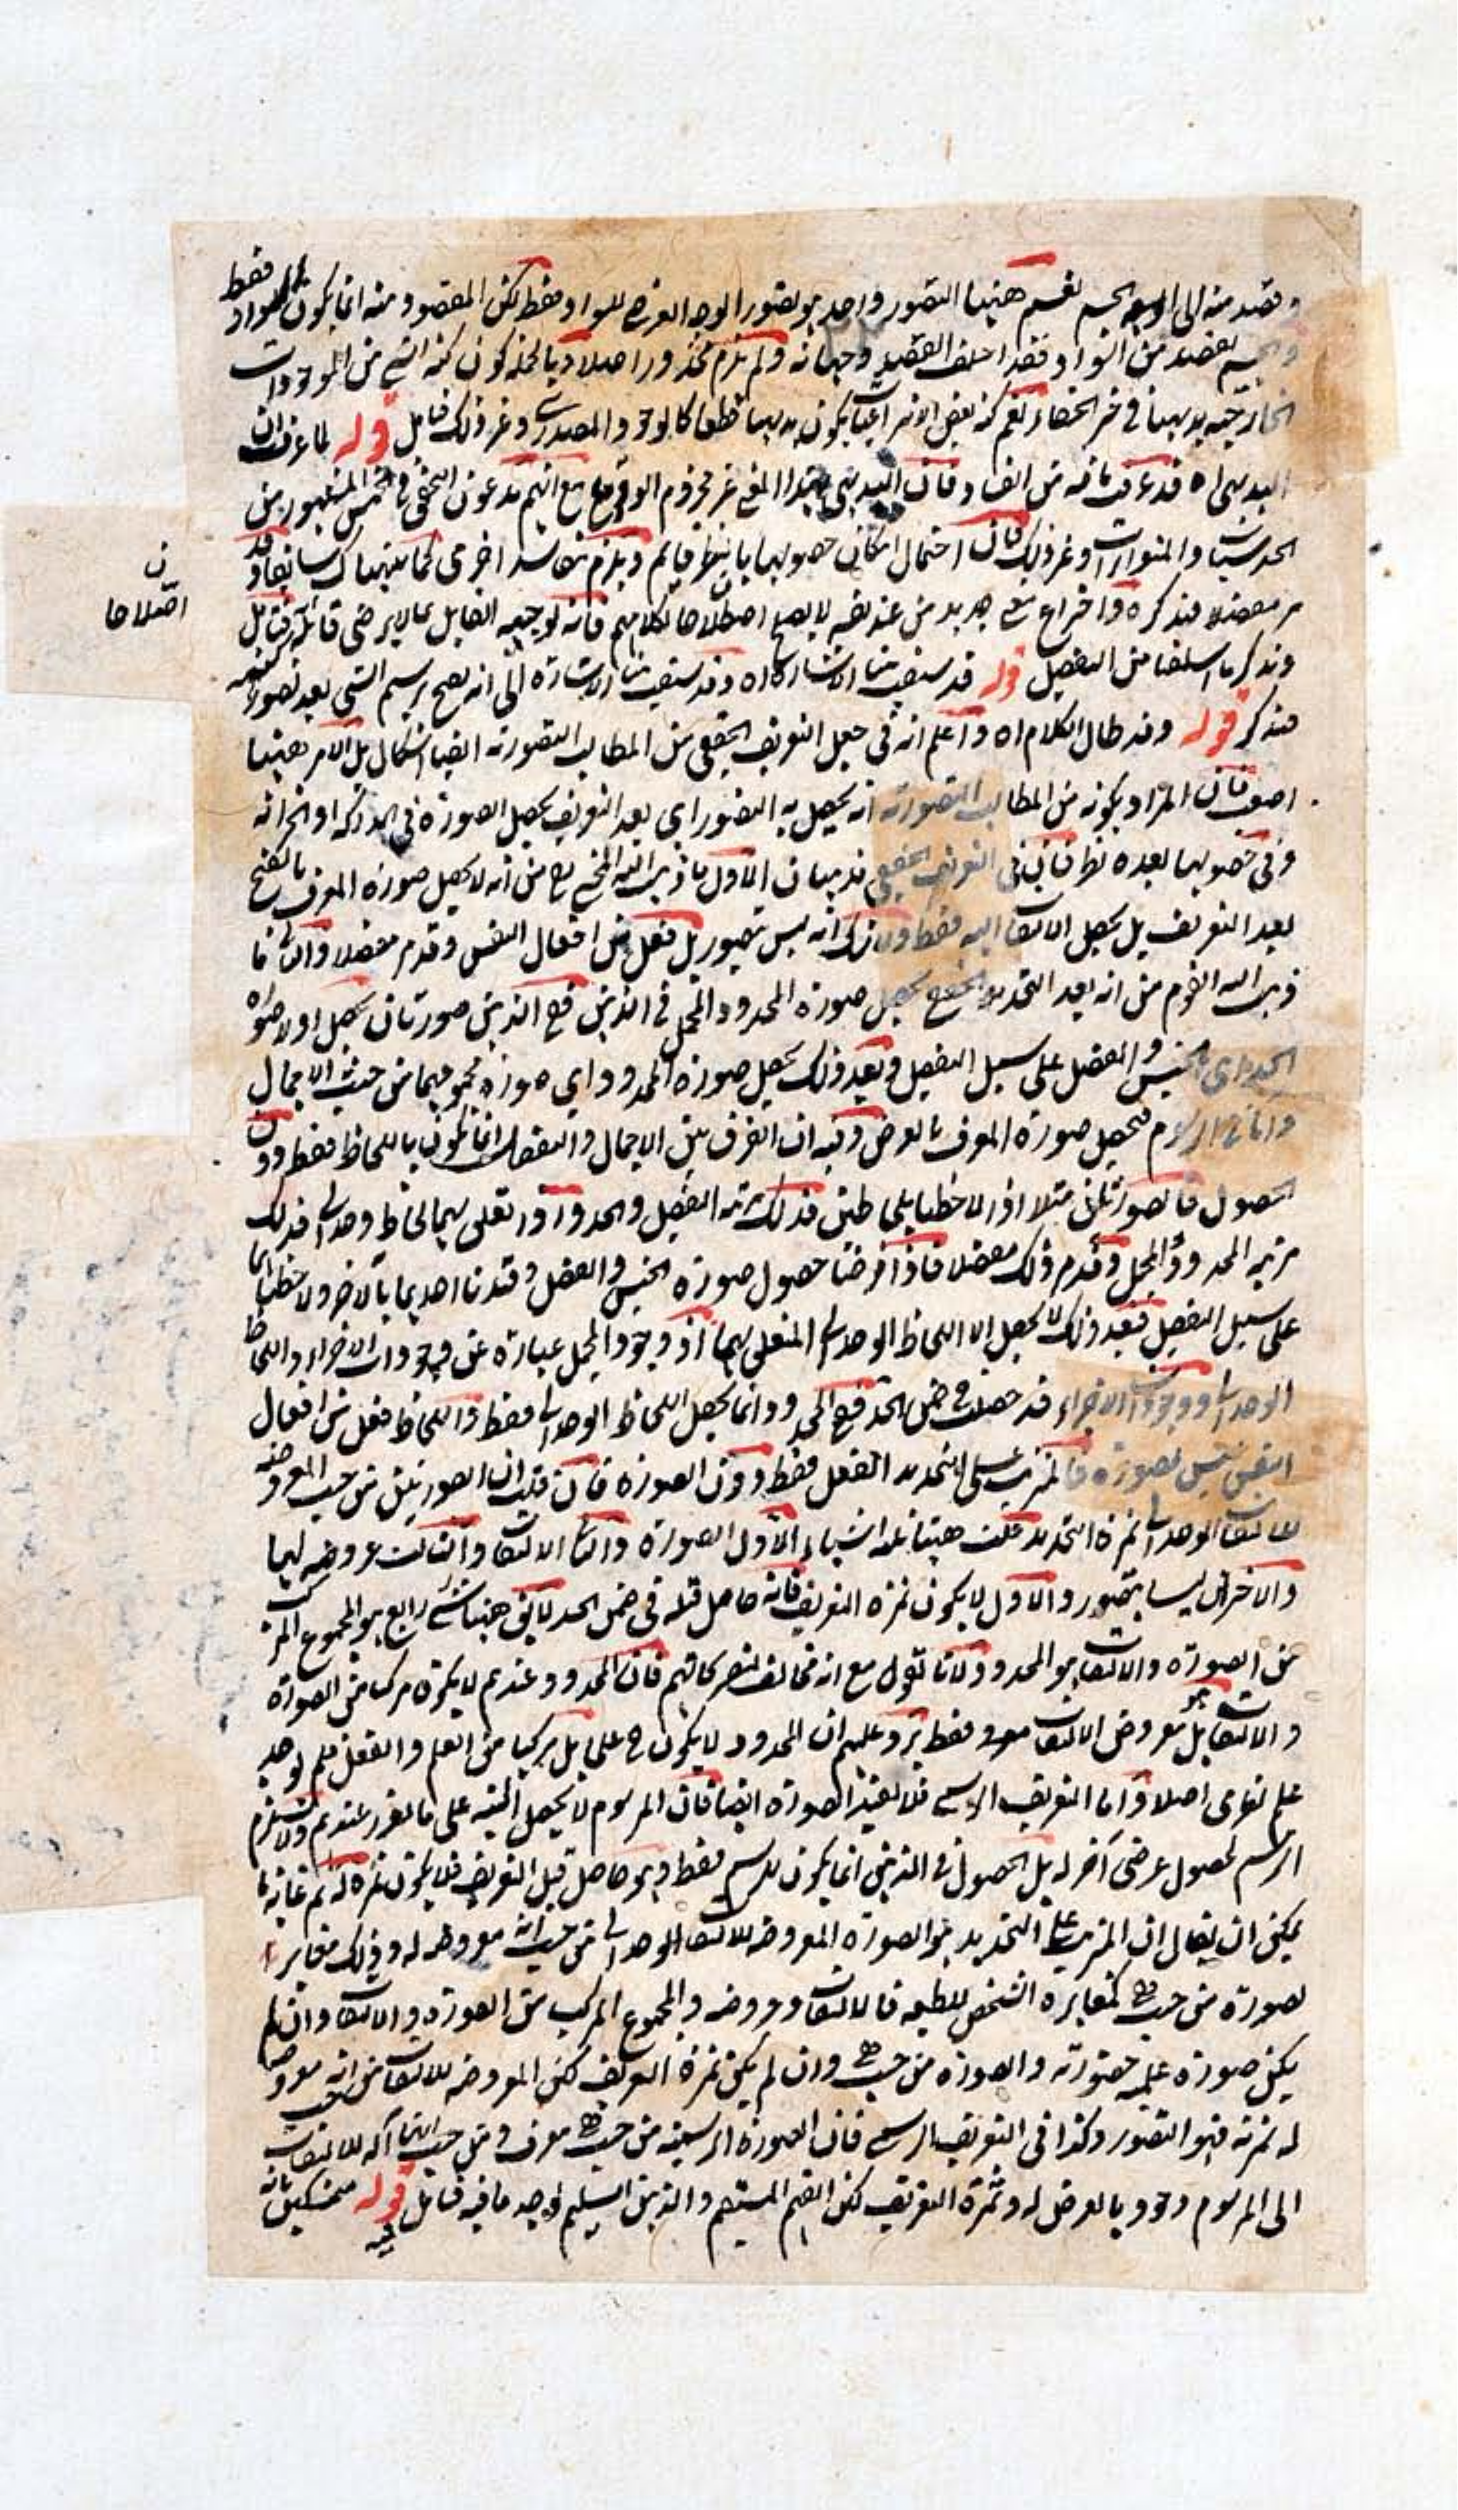 وقصد منه الى الجسم نعم ههنا التصور واحد هو تصور الوجه العرضي للسواد فقط لكن المقصود منه انما يكون السواد فقط
والجسم بقصد من السواد فقد اختلف القصد وجهاته ولم يلزم محذور اصلا وبالجملة كون كنه الشيء من الموجودات
الخارجية بديهيا في خير الخفاء نعم كنه بعض الامور يكون بديهيا قطعا كالوجود المصدري وغير ذلك فتامل قوله لما عرفت ان
البديهي اه قد عرفت ما فيه من الفساد فان البديهي بهذا المعنى غير مجزوم الوقوع مع انهم يدعون التحقق في المشهور من
الحدسيات والمتواترات وغير ذلك فان احتمال امكان حصولها بالنظر قايم ويلزم مفاسد اخرى كما نبهناك سابقا وقد
مر مفصلا فتذكره واختراع معنى جديد من عند نفسه لا يصح اصطلاحا لكلامهم فانه توجيه القايل بما لا يرضى قائله فتامل
اصطلاحا ن
وتذكر ما اسلفنا من التفصيل قوله قد سبقت منا الاشارة اه وقد سبقت منا الاشارة الى انه يصح رسم الشيء بعد تصوره بكنهه
فتذكر قوله وقد طال الكلام اه واعلم انه في جعل التعريف الحقيقي من المطالب التصورية ايضا اشكال بل الامر ههنا
اصعب فان المراد بكونه من المطالب التصورية انه يحصل به التصور اي بعد التعريف يحصل الصورة في المدركة او الخزانة
وفي حصولها بعده نظر فان في التعريف الحقيقي مذهبان الاول ما ذهب اليه المحقق من انه لا يحصل صورة المعرف بالفتح
بعد التعريف بل يحصل الالتفات اليه فقط ولا شك انه ليس بتصور بل فعل من افعال النفس وقد مر مفصلا والثاني ما
ذهب اليه القوم من انه بعد التحديد يحصل صورة المحدود المجمل في الذهن ففي الذهن صورتان يحصل اولا صورة
الحد اي الجنس والفصل على سبيل التفصيل وبعد ذلك يحصل صورة المحدود اي صورة مجموعهما من حيث الاجمال
واما في الرسوم فيحصل صورة المعرف بالعرض وفيه ان الفرق بين الاجمال والتفصيل انما يكون باللحاظ فقط دون
الحصول فالصورتان مثلا اذا لاحظنا بلحاظين فذلك مرتبة التفصيل والحد واذا تعلق بهما لحاظ وحداني فذلك
مرتبة المحدود والمجمل وقد مر ذلك مفصلا فاذا فرضنا حصول صورة الجنس والفصل وقيدنا احدهما بالآخر ولاحظناهما
على سبيل التفصيل فبعد ذلك لا يحصل الا اللحاظ الوحداني المتعلق بهما اذ وجود المجمل عبارة عن وجودات الاجزاء واللحاظ
الوحداني ووجودات الاجزاء قد حصلت في ضمن الحد ففي المحدود انما يحصل اللحاظ الوحداني فقط واللحاظ فعل من افعال
النفس ليس بصورة فالمترتب على التحديد الفعل فقط دون الصورة فان قلت ان الصورتين من حيث المعروضية
للالتفات الوحداني ثمرة التحديد قلت ههنا ثلثة اشياء الاول الصورة والثاني الالتفات والثالث عروضه لهما
والاخران ليسا بتصور والاول لا يكون ثمرة التعريف فانه حاصل قبله في ضمن الحد لا يقال ههنا شيء رابع هو المجموع المركب
من الصورة والالتفات هو المحدود لانا نقول مع انه مخالف لتصريحاتهم فان المحدود عندهم لا يكون مركبا من الصورة
والالتفات بل هو معروض الالتفات فقط يرد عليهم ان المحدود لا يكون ح علما بل مركبا من العلم والفعل فلم يوجد
علم نظري اصلا واما التعريف الرسمي فلا يفيد الصورة ايضا فان المرسوم لا يحصل البتة على ما تقرر عندهم ولا يستلزم
الرسم لحصول عرضي آخر له بل الحصول في الذهن انما يكون للرسم فقط وهو حاصل قبل التعريف فلا يكون ثمرة له نعم غاية ما
يمكن ان يقال ان المترتب على التحديد هو الصورة المعروضة للالتفات الوحداني من حيث انه معروضة له وذلك مغاير
لصورة من حيث هي كمغايرة الشخص للطبيعة فالالتفات وعروضه والمجموع المركب من الصورة والالتفات وان لم
يكن صورة علمية حضورية والصورة من حيث هي وان لم يكن ثمرة التعريف لكن المعروضة للالتفات من حيث انه معروضة
له ثمرته فهو التصور وكذا في التعريف الرسمي فان الصورة الرسمية من حيث هي معرف ومن حيث انها آلة للالتفات
الى المرسوم وجود بالعرض له وثمرة التعريف لكن الفهم المستقيم والذهن السليم يجد ما فيه فتامل فيه قوله متمسكين بانه